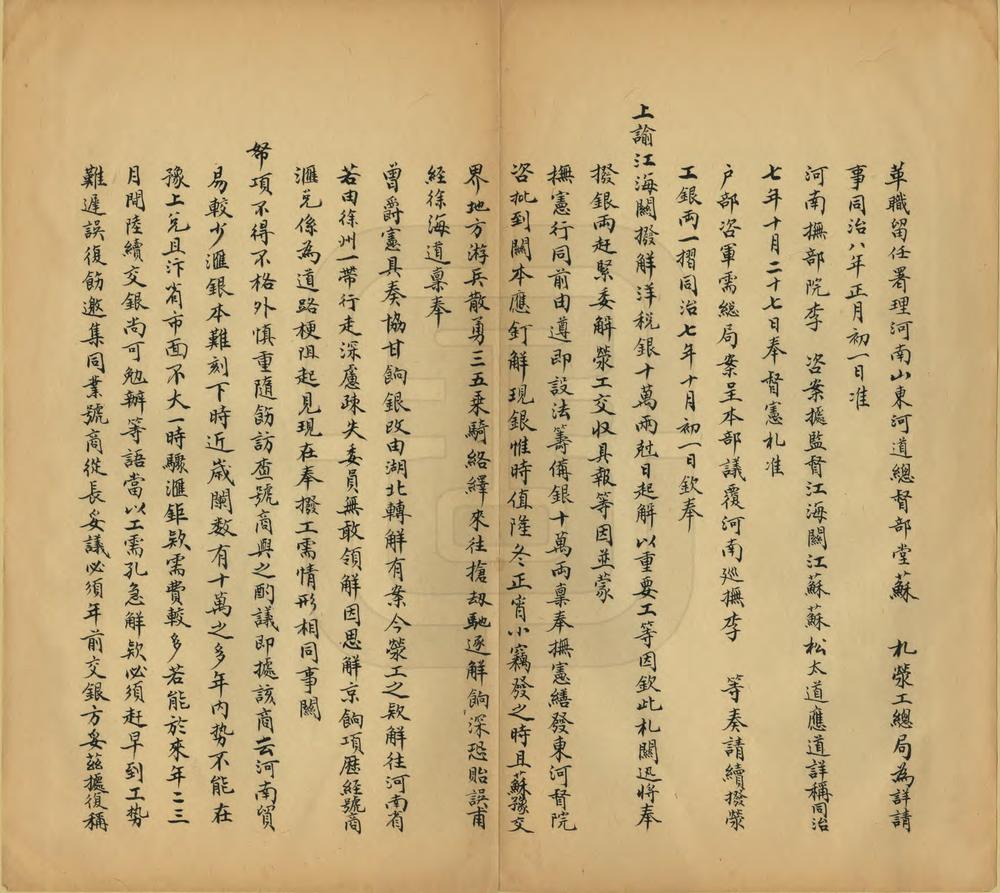 革職留任署理河南山東河道總督部堂蘇　札滎工總局為詳請
事同治八年正月初一日准
河南撫部院李　咨案據監督江海關江蘇蘇松太道應道詳稱同治
七年十月二十七日奉督憲札准
户部咨軍需總局案呈本部議覆河南巡撫李　等奏請續撥滎
工銀兩一摺同治七年十月初一日欽奉
上諭江海關撥解洋稅銀十萬兩尅日起解以重要工等因欽此札關迅將奉
撥銀兩赶緊委解滎工交収具報等因並蒙
撫憲行同前由遵即設法籌備銀十萬兩稟奉撫憲繕發東河督院
咨批到關本應釘解現銀惟時值隆冬正宵小竊發之時且蘇豫交
界地方游兵散勇三五乘騎絡繹來往搶刼馳逐解餉深恐貽誤甫
經徐海道稟奉
曾爵憲具奏協甘餉銀改由湖北轉解有案今滎工之欵解往河南省
若由徐州一帶行走深慮疎失委員無敢領解因思解京餉項歷經號商
滙兑係為道路梗阻起見現在奉撥工需情形相同事關
帑項不得不格外慎重隨飭訪查號商與之酌議即據該商云河南貿
易較少滙銀本難刻下時近歲闌数有十萬之多年内势不能在
豫上兑且汴省市面不大一時驟滙鉅欵需費較多若能於來年二三
月間陸續交銀尚可勉辦等語當以工需孔急解欵必須赶早到工势
難遲誤復飭邀集同業號商從長妥議必須年前交銀方妥茲據復稱